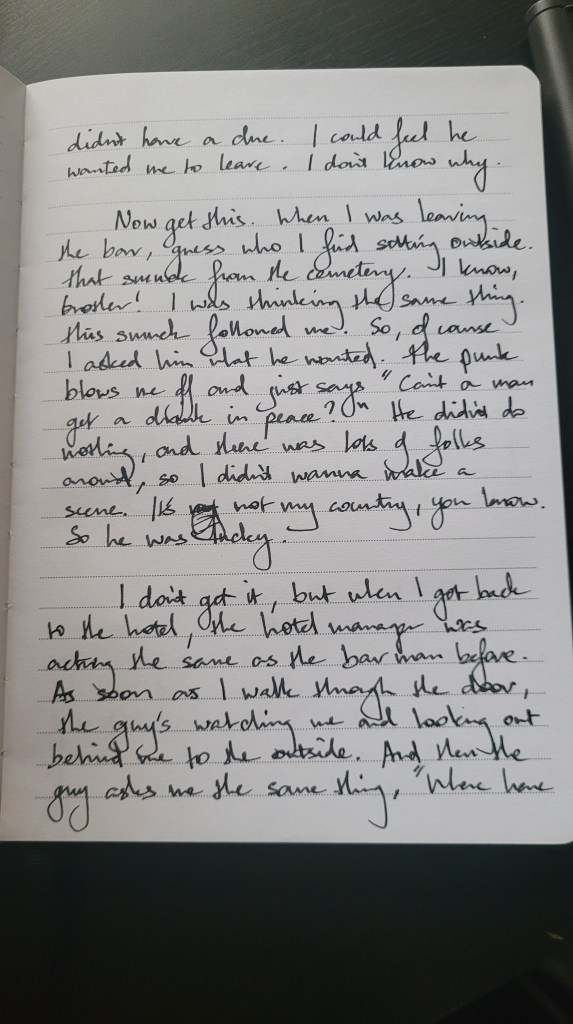 didn't have a clue. I could feel he
wanted me to leave. I don't know why.
Now get this. When I was leaving
the bar, guess who I find sitting outside.
That smuck from the cemetery. I know,
brother! I was thinking the same thing.
this smuck followed me. So, of course
I asked him what he wanted. The punk
blows me off and just says "Can't a man
get a drink in peace?" He didn't do
nothing, and there was lots of folks
around, so I didn't wanna make a
scene. It's not my country, you know.
So he was lucky.
I don't get it, but when I got back
to the hotel, the hotel manager was
acting the same as the bar man before.
As soon as I walk through the door,
the guy's watching me and looking out
behind me to the outside. And then the
guy asks me the same thing, "Where have